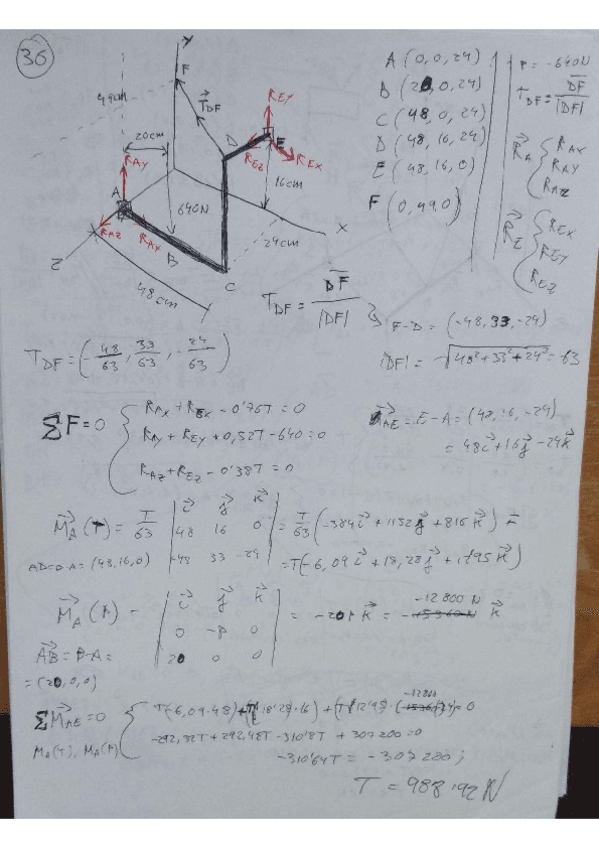 36
Y
F
49cm
T⃗DF
REY
D
E
20cm
REZ
REX
RAY
16cm
A
640N
X
RAZ
RAX
B
24cm
Z
C
48cm
A (0,0,24)
B (20,0,24)
C (48,0,24)
D (48,16,24)
E (48,16,0)
F (0,49,0)
P = -640N
TDF = DF / |DF|
R⃗A { RAX RAY RAZ
R⃗E { REX REY REZ
TDF = DF / |DF|
F-D = (-48,33,-24)
|DF| = √48²+33²+24² = 63
TDF = (-48/63, 33/63, -24/63)
ΣF=0 { RAX + REX - 0'76T = 0
RAY + REY + 0,52T - 640 = 0
RAZ + REZ - 0'38T = 0
R⃗AE = E - A = (48,16,-24)
= 48i⃗ + 16j⃗ - 24k⃗
M⃗A (T) = T/63 | i⃗ j⃗ k⃗
48 16 0
-48 33 -24 | = T/63 (-384i⃗ + 1152j⃗ + 816k⃗) =
AD = D-A = (48,16,0)
= T(-6,09i⃗ + 18,28j⃗ + 12'95k⃗)
M⃗A (P) = | i⃗ j⃗ k⃗
0 -P 0
20 0 0 | = -20P k⃗ = -12800 N k⃗
A⃗B = B-A =
= (20,0,0)
ΣM⃗AE = 0
MA(T), MA(P)
T(-6,09·48) + (T·18'28·16) + (T·12'95 · (-12800)(-24) = 0
-292,32T + 292,48T - 310'8T + 307200 = 0
-310'64T = -307200;
T = 988'92N